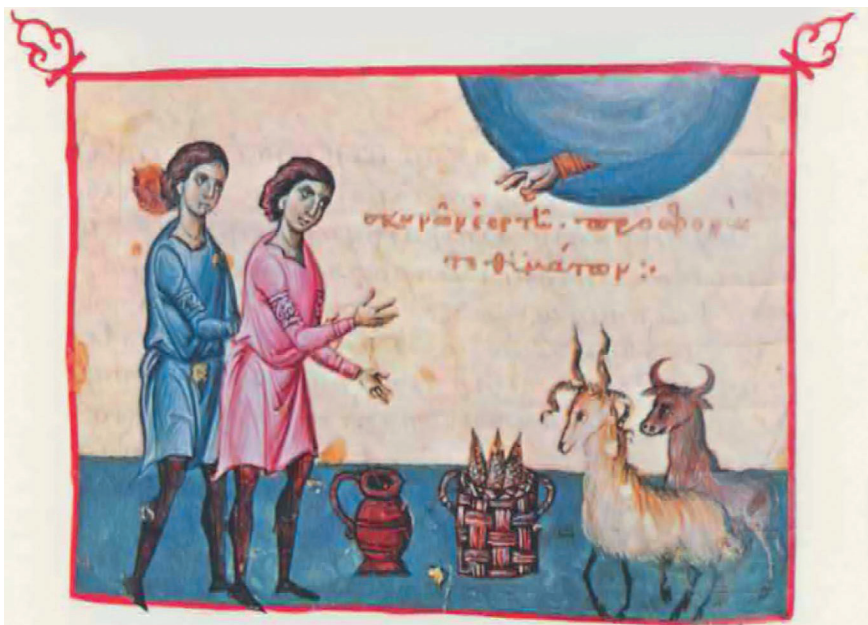 σκηνῶν ἑορτῶ. προσφορὰ
το θιμάτων:·